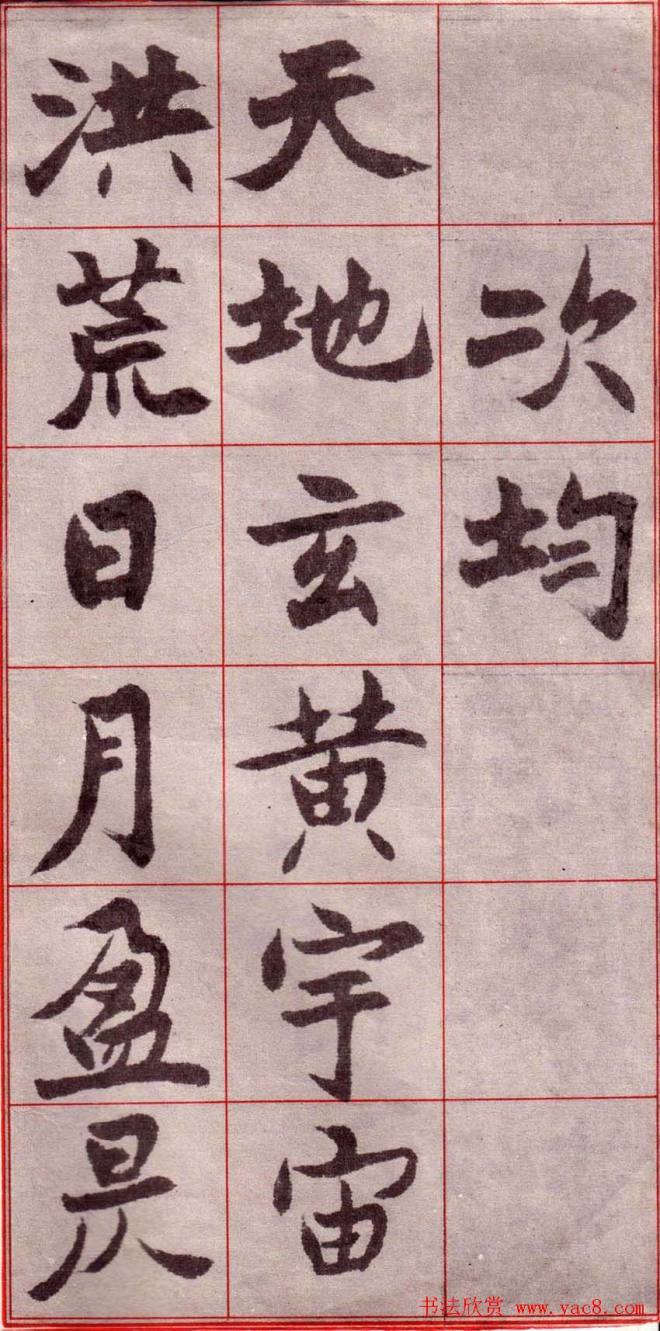 次均
天地玄黄宇宙
洪荒日月盈昃
书法欣赏 www.yac8.com